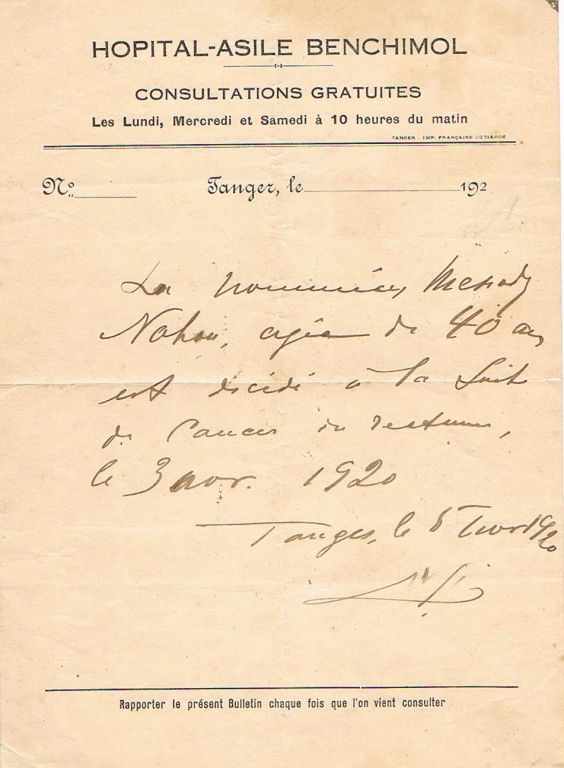 HOPITAL-ASILE BENCHIMOL
CONSULTATIONS GRATUITES
Les Lundi, Mercredi et Samedi à 10 heures du matin
TANGER - IMP. FRANÇAISE
Nº
Tanger, le 192
La nommée, Messody
Nahon, agée de 40 ans
est décédé à la suite
de Cancer du rectum,
le 3 avr. 1920
Tanger, le 5 1920
Rapporter le présent Bulletin chaque fois que l'on vient consulter